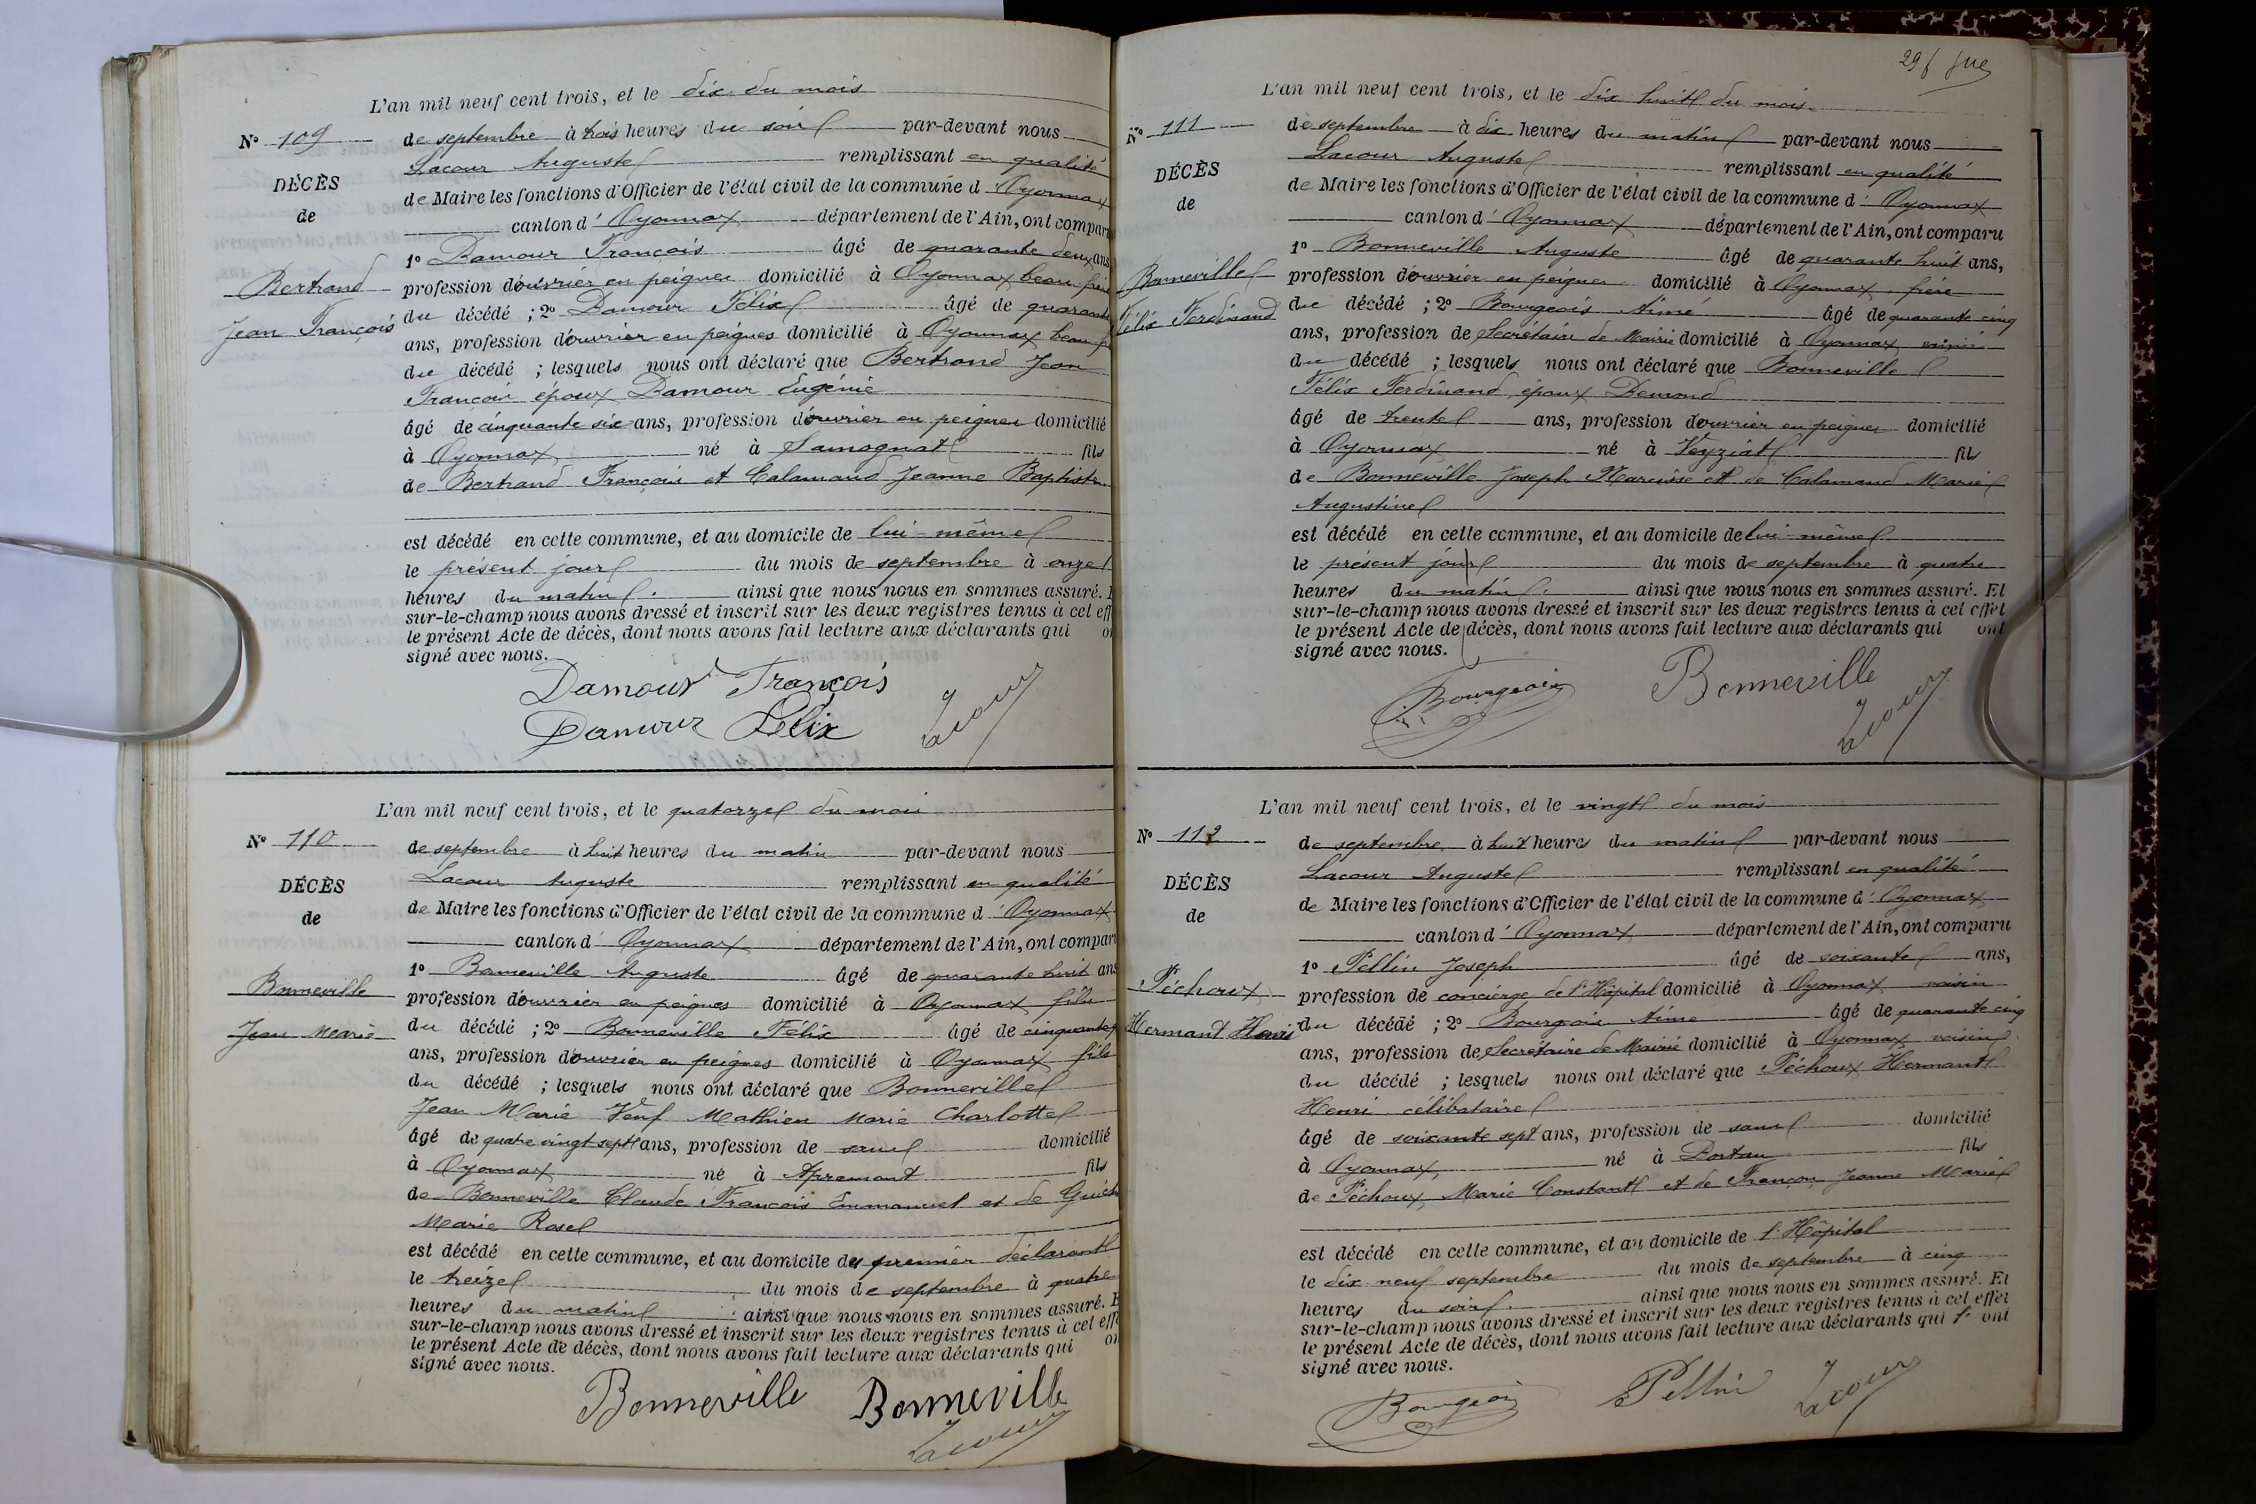 L'an mil neuf cent trois, et le dix du mois
N° 109
de septembre à trois heures du soir par-devant nous
Lacour Auguste remplissant en qualité
DÉCÈS
de Maire les fonctions d'Officier de l'état civil de la commune d'Oyonnax
de
canton d'Oyonnax département de l'Ain, ont compar
1° Damour François âgé de quarante deux ans
Bertrand
profession d'ouvrier en peignes domicilié à Oyonnax beau frère
Jean François
du décédé ; 2° Damour Félix âgé de quarante
ans, profession d'ouvrier en peignes domicilié à Oyonnax beau
du décédé ; lesquels nous ont déclaré que Bertrand Jean
François époux Damour Eugénie
âgé de cinquante six ans, profession d'ouvrier en peignes domicilié
à Oyonnax né à Samognat fils
de Bertrand François et Calamand Jeanne Baptiste
est décédé en cette commune, et au domicile de lui-même
le présent jour du mois de septembre à onze
heures du matin. ainsi que nous nous en sommes assuré.
sur-le-champ nous avons dressé et inscrit sur les deux registres tenus à cel eff
le présent Acte de décès, dont nous avons fait lecture aux déclarants qui
signé avec nous.
Damour François
Damour Félix
Lacour
L'an mil neuf cent trois, et le quatorze du mois
N° 110
de septembre à huit heures du matin par-devant nous
Lacour Auguste remplissant en qualité
DÉCÈS
de Maire les fonctions d'Officier de l'état civil de la commune d'Oyonnax
de
canton d'Oyonnax département de l'Ain, ont compar
1° Bonneville Auguste âgé de quarante huit ans
Bonneville
profession d'ouvrier en peignes domicilié à Oyonnax fils
Jean Marie
du décédé ; 2° Bonneville Félix âgé de cinquante
ans, profession d'ouvrier en peignes domicilié à Oyonnax fils
du décédé ; lesquels nous ont déclaré que Bonneville
Jean Marie Veuf Mathieu Marie Charlotte
âgé de quatre vingt sept ans, profession de sans domicilié
à Oyonnax né à Apremont fils
de Bonneville Claude François Emmanuel et de
Marie Rose
est décédé en cette commune, et au domicile du premier déclarant
le treize du mois de septembre à quatre
heures du matin ainsi que nous nous en sommes assuré.
sur-le-champ nous avons dressé et inscrit sur les deux registres tenus à cel eff
le présent Acte de décès, dont nous avons fait lecture aux déclarants qui
signé avec nous.
Bonneville Bonneville
Lacour
L'an mil neuf cent trois, et le dix huit du mois
N° 111
de septembre à dix heures du matin par-devant nous
Lacour Auguste remplissant en qualité
DÉCÈS
de Maire les fonctions d'Officier de l'état civil de la commune d'Oyonnax
de
canton d'Oyonnax département de l'Ain, ont comparu
1° Bonneville Auguste âgé de quarante huit ans,
Bonneville
profession d'ouvrier en peignes domicilié à Oyonnax, frère
Félix Ferdinand
du décédé ; 2° Bourgeois Aimé âgé de quarante cinq
ans, profession de Secrétaire de Mairie domicilié à Oyonnax, voisin
du décédé ; lesquels nous ont déclaré que Bonneville
Félix Ferdinand, époux Demond
âgé de trente ans, profession d'ouvrier en peignes domicilié
à Oyonnax né à Veyziat fils
de Bonneville Joseph Narcisse et de Calamand Marie
Augustine
est décédé en cette commune, et au domicile de lui-même
le présent jour du mois de septembre à quatre
heures du matin. ainsi que nous nous en sommes assuré. Et
sur-le-champ nous avons dressé et inscrit sur les deux registres tenus à cel effet
le présent Acte de décès, dont nous avons fait lecture aux déclarants qui ont
signé avec nous.
Bourgeois Bonneville
Lacour
L'an mil neuf cent trois, et le vingt du mois
N° 112
de septembre à huit heures du matin par-devant nous
Lacour Auguste remplissant en qualité
DÉCÈS
de Maire les fonctions d'Officier de l'état civil de la commune d'Oyonnax
de
canton d'Oyonnax département de l'Ain, ont comparu
1° Pellin Joseph âgé de soixante ans,
Péchoux
profession de concierge de l'Hôpital domicilié à Oyonnax voisin
Hermant Henri
du décédé ; 2° Bourgeois Aimé âgé de quarante cinq
ans, profession de Secrétaire de Mairie domicilié à Oyonnax voisin
du décédé ; lesquels nous ont déclaré que Péchoux Hermant
Henri célibataire
âgé de soixante sept ans, profession de sans domicilié
à Oyonnax, né à Dortan fils
de Péchoux, Marie Constant et de Françon Jeanne Marie
est décédé en cette commune, et au domicile de l'Hôpital
le dix neuf septembre du mois de septembre à cinq
heures du soir. ainsi que nous nous en sommes assuré. Et
sur-le-champ nous avons dressé et inscrit sur les deux registres tenus à cel effet
le présent Acte de décès, dont nous avons fait lecture aux déclarants qui l' ont
signé avec nous.
Bourgeois Pellin Lacour